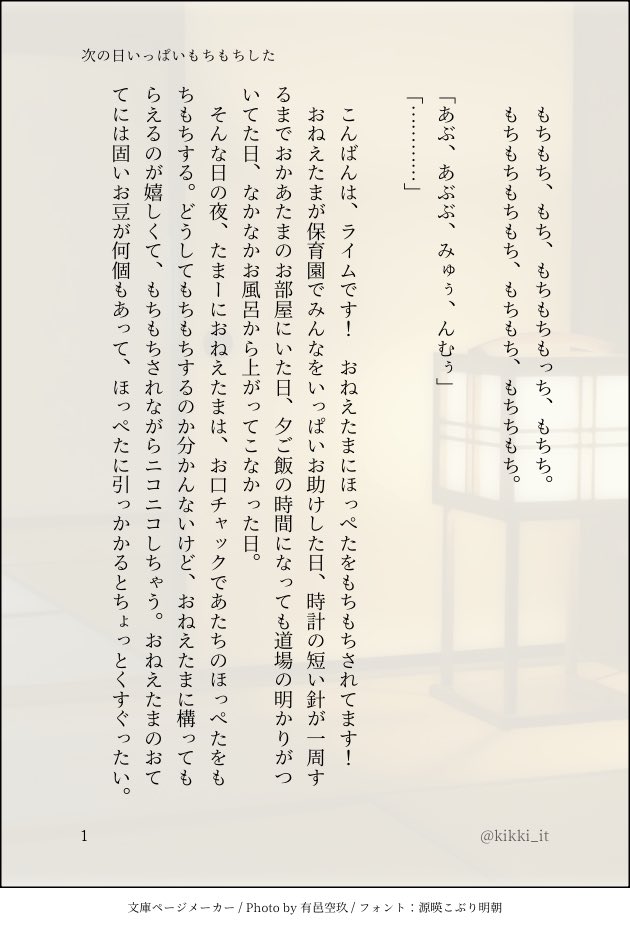 次の日いっぱいもちもちした
もちもち、もち、もちもちもっち、もちっ。
もちもちもちもち、もちもち、もちちもち。
「あぶ、あぶぶ、みゅぅ、んむぅ」
「…………」
こんばんは、ライムです！　おねえたまにほっぺたをもちもちされてます！
おねえたまが保育園でみんなをいっぱいお助けした日、時計の短い針が一周す
るまでおかあたまのお部屋にいた日、夕ご飯の時間になっても道場の明かりがつ
いてた日、なかなかお風呂から上がってこなかった日。
そんな日の夜、たまーにおねえたまは、お口チャックであたちのほっぺたをも
ちもちする。どうしてもちもちするのか分かんないけど、おねえたまに構っても
らえるのが嬉しくて、もちもちされながらニコニコしちゃう。おねえたまのおて
てには固いお豆が何個もあって、ほっぺたに引っかかるとちょっとくすぐったい。
1
@kikki_it
文庫ページメーカー / Photo by 有邑空玖 / フォント：源暎こぶり明朝